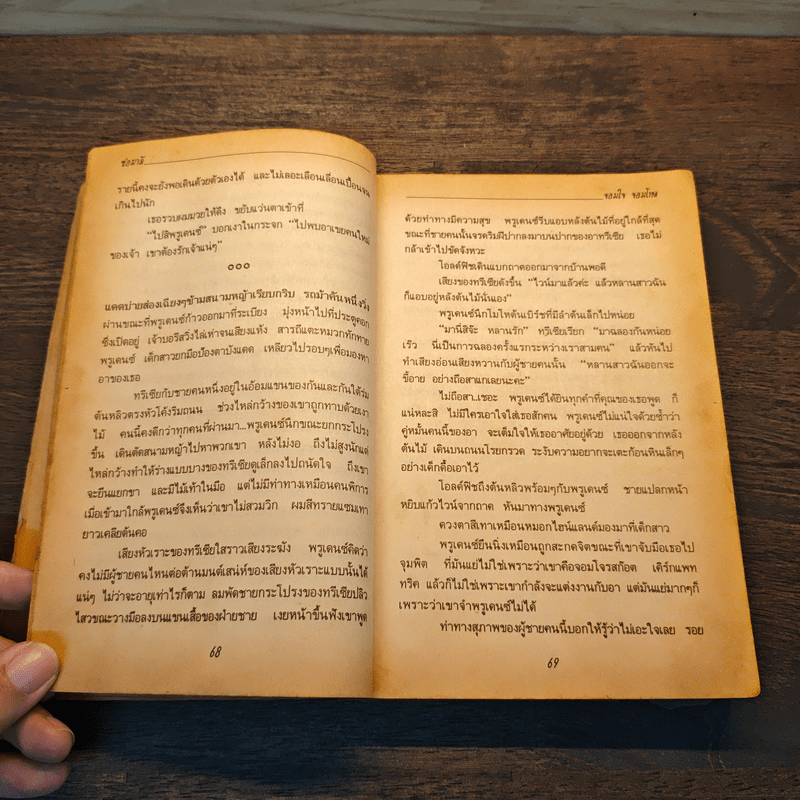 ช่อมาลี
รายนี้คงจะยังพอเดินด้วยตัวเองได้ และไม่เลอะเลือนเลื่อนเปื้อนจน
เกินไปนัก
เธอรวบผมมวยให้ตึง ขยับแว่นตาเข้าที่
“ไปสิพรูเดนซ์” บอกเงาในกระจก “ไปพบอาเขยคนใหม่
ของเจ้า เขาต้องรักเจ้าแน่ๆ”
๐๐๐
แดดบ่ายส่องเฉียงๆข้ามสนามหญ้าเรียบกริบ รถม้าคันหนึ่งวิ่ง
ผ่านขณะที่พรูเดนซ์ก้าวออกมาที่ระเบียง มุ่งหน้าไปที่ประตูคอก
ซึ่งเปิดอยู่ เจ้าบอรีสวิ่งไล่เห่าจนเสียงแห้ง สารถีแตะหมวกทักทาย
พรูเดนซ์ เด็กสาวยกมือป้องตาบังแดด เหลียวไปรอบๆเพื่อมองหา
อาของเธอ
ทรีเซียกับชายคนหนึ่งอยู่ในอ้อมแขนของกันและกันใต้ร่ม
ต้นหลิวตรงหัวโค้งริมถนน ช่วงไหล่กว้างของเขาถูกทาบด้วยเงา
ไม้ คนนี้คงดีกว่าทุกคนที่ผ่านมา...พรูเดนซ์นึกขณะยกกระโปรง
ขึ้น เดินตัดสนามหญ้าไปหาพวกเขา หลังไม่งอ ถึงไม่สูงนักแต่
ไหล่กว้างทำให้ร่างแบบบางของทรีเซียดูเล็กลงไปถนัดใจ ถึงเขา
จะยืนแยกขา และมีไม้เท้าในมือ แต่ไม่มีท่าทางเหมือนคนพิการ
เมื่อเข้ามาใกล้พรูเดนซ์จึงเห็นว่าเขาไม่สวมวิก ผมสีทรายแซมเทา
ยาวเคลียต้นคอ
เสียงหัวเราะของทรีเซียใสราวเสียงระฆัง พรูเดนซ์คิดว่า
คงไม่มีผู้ชายคนไหนต่อต้านมนต์เสน่ห์ของเสียงหัวเราะแบบนั้นได้
แน่ๆ ไม่ว่าจะอายุเท่าไรก็ตาม ลมพัดชายกระโปรงของทรีเซียปลิว
ไสวขณะวางมือลงบนแขนเสื้อของฝ่ายชาย เงยหน้าขึ้นฟังเขาพูด
68
จอมใจ จอมโหด
ด้วยท่าทางมีความสุข พรูเดนซ์รีบแอบหลังต้นไม้ที่อยู่ใกล้ที่สุด
ขณะที่ชายคนนั้นจรดริมฝีปากลงมาบนปากของอาทรีเซีย เธอไม่
กล้าเข้าไปขัดจังหวะ
โอลด์ฟิชเดินแบกถาดออกมาจากบ้านพอดี
เสียงของทรีเซียดังขึ้น “ไวน์มาแล้วค่ะ แล้วหลานสาวฉัน
ก็แอบอยู่หลังต้นไม้นั่นเอง”
พรูเดนซ์นึกโมโหต้นเบิร์ชที่มีลำต้นเล็กไปหน่อย
“มานี่สิจ๊ะ หลานรัก” ทรีเซียเรียก “มาฉลองกันหน่อย
เร๊ว นี่เป็นการฉลองครั้งแรกระหว่างเราสามคน” แล้วหันไป
ทำเสียงอ่อนเสียงหวานกับผู้ชายคนนั้น “หลานสาวฉันออกจะ
ขี้อาย อย่างถือสาแกเลยนะคะ”
ไม่ถือสา..เชอะ พรูเดนซ์ได้ยินทุกคำที่คุณของเธอพูด ก็
แน่หละสิ ไม่มีใครเอาใจใส่เธอสักคน พรูเดนซ์ไม่แน่ใจด้วยซ้ำว่า
คู่หมั้นคนนี้ของอา จะเต็มใจให้เธออาศัยอยู่ด้วย เธอออกจากหลัง
ต้นไม้ เดินบนถนนโรยกรวด ระงับความอยากจะเตะก้อนหินเล็กๆ
อย่างเด็กดื้อเอาไว้
โอลด์ฟิชถึงต้นหลิวพร้อมๆกับพรูเดนซ์ ชายแปลกหน้า
หยิบแก้วไวน์จากถาด หันมาทางพรูเดนซ์
ดวงตาสีเทาเหมือนหมอกไฮน์แลนด์มองมาที่เด็กสาว
พรูเดนซ์ยืนนิ่งเหมือนถูกสะกดจิตขณะที่เขาจับมือเธอไป
จุมพิต ที่มันแย่ไม่ใช่เพราะว่าเขาคือจอมโจรสก๊อต เคิร์กแพท
ทริค แล้วก็ไม่ใช่เพราะเขากำลังจะแต่งงานกับอา แต่มันแย่มากๆก็
เพราะว่าเขาจำพรูเดนซ์ไม่ได้
ท่าทางสุภาพของผู้ชายคนนี้บอกให้รู้ว่าไม่เอะใจเลย รอย
69